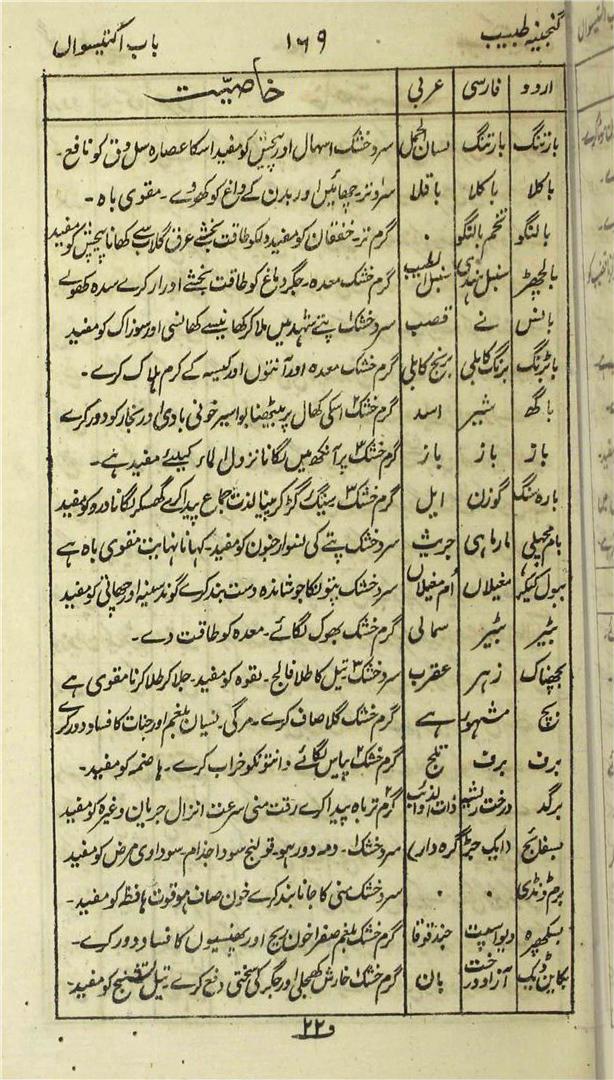 گنجینہ طبیب ۱۶۹ باب اکتیسواں
اردو فارسی عربی خاصیّت
بارتنگ بارتنگ لسان الحمل سرد خشک اسہال اور پیچش کو مفید اسکا عصارہ سل و دق کو نافع۔
باکلا باکلا باقلا سرد تر۔ چھائیں اور بدن کے داغ کو کھووے۔ مقوی باہ۔
بالنگو تخم بالنگو ۰ گرم تر۔ خفقان کو مفید دلکو طاقت بخشے عرق گلاب سے کھانا پیچش کو مفید
بالچھڑ سنبل ہندی سنبل الطیب گرم خشک معدہ۔ جگر دماغ کو طاقت بخشے ادرار کرے سدہ کھولے
بانس نے قصب سرد خشک۱ پتے شہد میں ملا کر کھانیسے کھانسی اور سوزاک کو مفید
بائبڑنگ برنگ کابلی برنج کابلی گرم خشک معدہ اور آنتوں اور کیسہ کے کرم ہلاک کرے۔
باگھ شیر اسد گرم خشک۲ اسکی کھال پر بیٹھنا بواسیر خونی بادی اور بخار کو دور کرے
باز باز باز گرم خشک۳ پر آنکھ میں لگانا نزول الماء کیلیے مفید ہے۔
بارہ سنگہ گوزن ایل گرم خشک۳ سینگ رگڑ کر پینا لذت جماع پیدا کرے گھسکر لگانا درد کو مفید
بام مچھلی مارماہی جریث سرد خشک پتے کی نسوار جنون کو مفید۔ کھانا نہایت مقوی باہ ہے
ببول کیکر مغیلاں اُم مغیلاں سرد خشک پتونکا جوشاندہ دست بند کرے گوند سینہ اور چھاتی کو مفید
بٹیر بٹیر سمانی گرم خشک بھوک لگائے۔ معدہ کو طاقت دے۔
بچھناک زہر عقرب سرد خشک۳ تیل کا طلا فالج۔ لقوہ کو مفید۔ جلا کر طلا کرنا مقوی ہے
بچ مشہور ہے گرم خشک گلا صاف کرے۔ مرگی۔ نسیان بلغم اور جنات کا فساد دور کرے
برف برف ثلج گرم خشک۲ پیاس لگائے دانتونکو خراب کرے۔ ہاضمہ کو مفید۔
برگد درخت ریشہ ذات الذوائب گرم تر باہ پیدا کرے رقت منی سرعت انزال جریان وغیرہ کو مفید
بسفائج (ایک جڑ گرہ دار) سرد خشک۱۔ دمہ دور ہو۔ قولنج سودا جذام۔ سوداوی مرض کو مفید
برم ڈنڈی ۰ ۰ سرد خشک منی کا جانا بند کرے خون صاف ہو قوت حافظہ کو مفید۔
بسکھپرہ دیو اسپست حندقوقا گرم خشک بلغم صفرا خون ریح اور پھنسیوں کا فساد دور کرے۔
بکاین ڈیک آزاد درخت بان گرم خشک۱ خارش کھجلی اور جگر کی سختی دفع کرے تیل تشنج کو مفید۔
۲۲